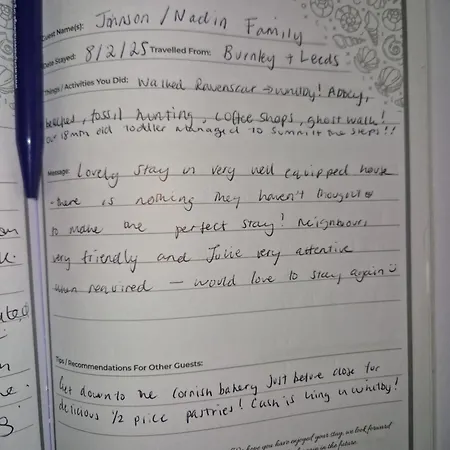 Guest Name(s): Johnson / Nadin Family
Date Stayed: 8/2/25 Travelled From: Burnley + Leeds
Things / Activities You Did: Walked Ravenscar → Whitby! Abbey,
fossil hunting, coffee shops, ghost walk!
our 18mth old toddler managed to summit the steps!!
Message: Lovely stay in very well equipped house
- there is nothing they haven't thought
to make the perfect stay! Neighbours
very friendly and Julie very attentive
when required — would love to stay again ☺
Tips / Recommendations For Other Guests:
Get down to the Cornish bakery just before close for
delicious 1/2 price pastries! Cash is king in Whitby!
hope you have enjoyed your stay, we look forward
in the future.